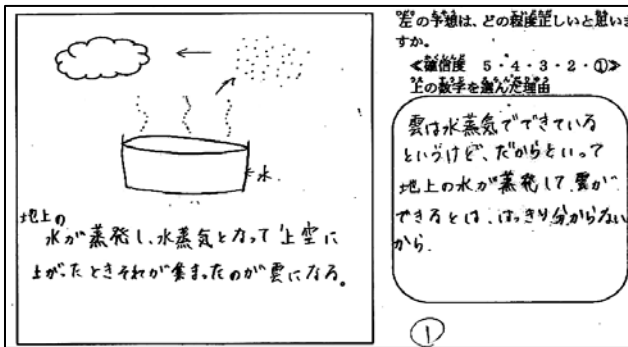 水
地上の
水が蒸発し、水蒸気となって上空に
上がったときそれが集まったのが雲になる。
左の予想は、どの程度正しいと思いま
すか。
≪確信度 5・4・3・2・①≫
上の数字を選んだ理由
雲は水蒸気でできている
というけど、だからといって
地上の水が蒸発して、雲が
できるとは、はっきり分からない
から.
①